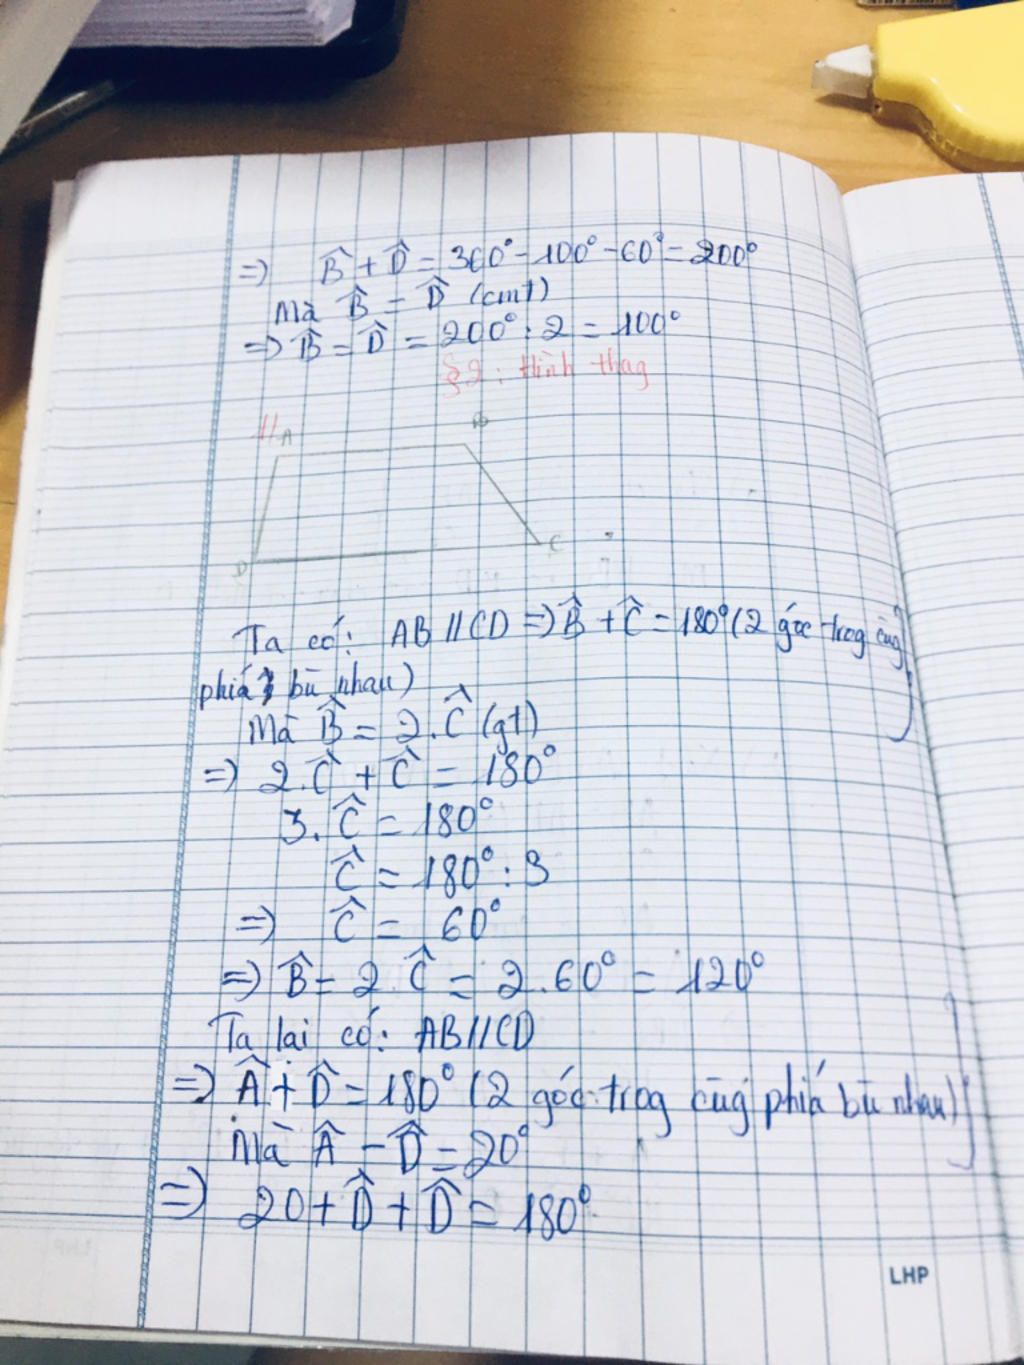 => B̂ + D̂ = 360° - 100° - 60° = 200°
Mà B̂ = D̂ (cmt)
=> B̂ = D̂ = 200° : 2 = 100°
§2: Hình thag
1/
A B
D C
Ta có: AB // CD => B̂ + Ĉ = 180° (2 góc trog cùg
phiá bù nhau)
Mà B̂ = 2. Ĉ (gt)
=> 2. Ĉ + Ĉ = 180°
3. Ĉ = 180°
Ĉ = 180° : 3
=> Ĉ = 60°
=> B̂ = 2. Ĉ = 2. 60° = 120°
Ta lại có: AB // CD
=> Â + D̂ = 180° (2 góc trog cùg phiá bù nhau)
Mà Â - D̂ = 20°
=> 20 + D̂ + D̂ = 180°
LHP